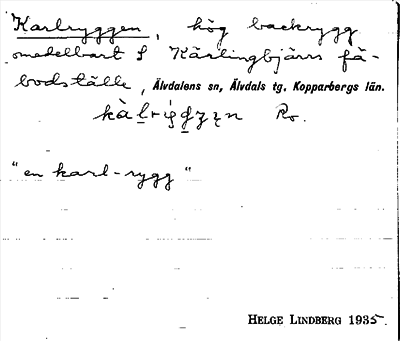 Karlryggen, hög backrygg
omedelbart S Kärlingbjärns fä-
bodställe, Älvdalens sn, Älvdals tg. Kopparbergs län.
Ro.
"en karl-rygg"
HELGE LINDBERG 1935.